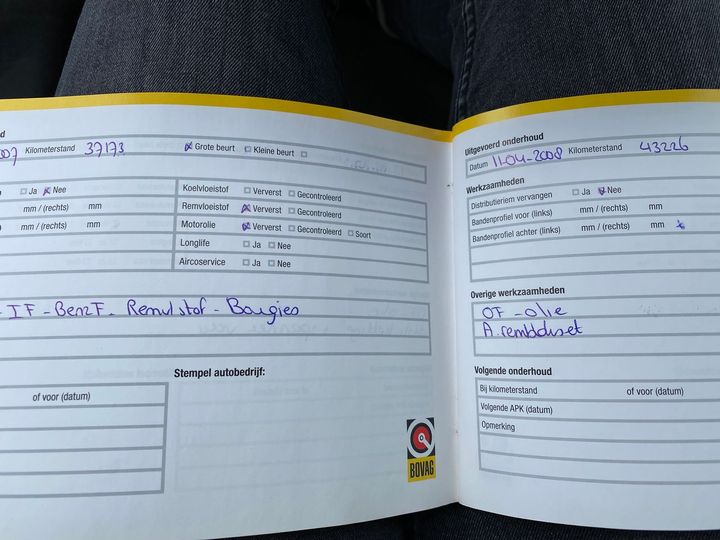 007 Kilometerstand 37173 Grote beurt Kleine beurt
Ja Nee
mm / (rechts) mm
mm / (rechts) mm
Koelvloeistof Ververst Gecontroleerd
Remvloeistof Ververst Gecontroleerd
Motorolie Ververst Gecontroleerd Soort
Longlife Ja Nee
Aircoservice Ja Nee
- IF - BenzF - Remvlstof - Bougies
of voor (datum)
Stempel autobedrijf:
BOVAG
Uitgevoerd onderhoud
Datum 11-04-2008 Kilometerstand 43226
Werkzaamheden
Distributieriem vervangen Ja Nee
Bandenprofiel voor (links) mm / (rechts) mm
Bandenprofiel achter (links) mm / (rechts) mm
Overige werkzaamheden
OF - olie
A. remblokset
Volgende onderhoud
Bij kilometerstand of voor (datum)
Volgende APK (datum)
Opmerking